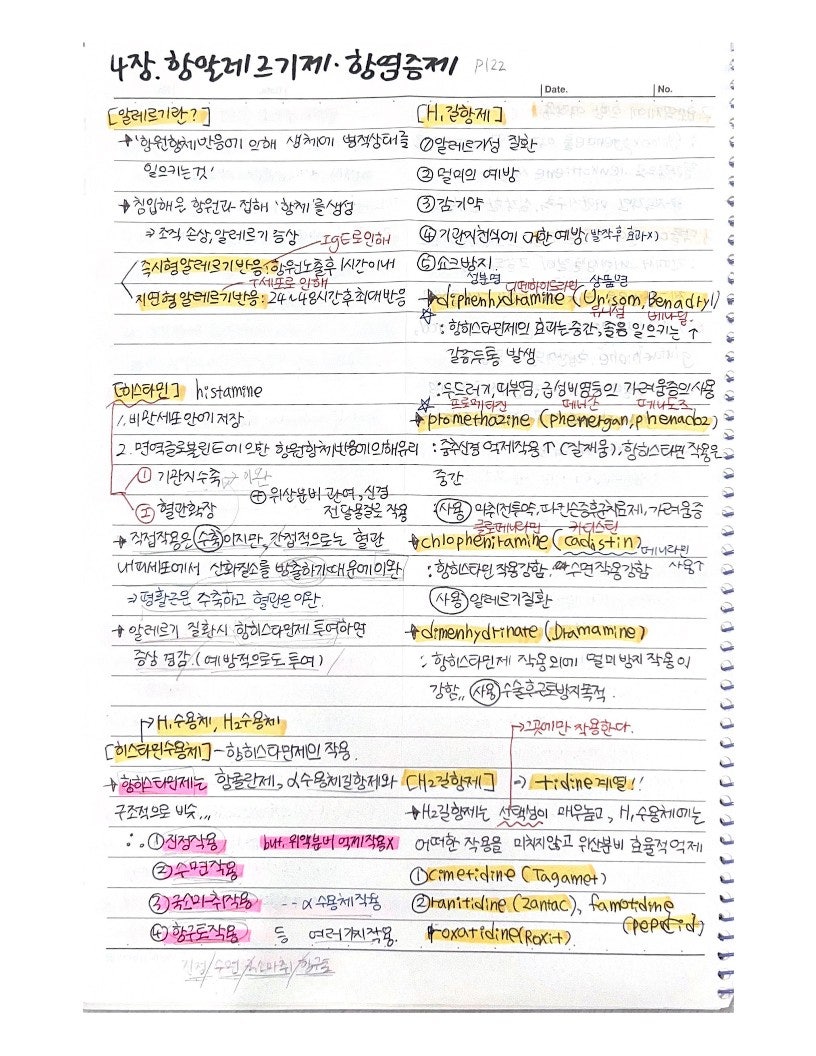 4장. 항알레르기제·항염증제 P122
Date. No.
[알레르기란?]
→ '항원항체반응에 의해 생체에 병적상태를
일으키는 것'
→ 침입해온 항원과 접해 '항체'를 생성
⇒ 조직 손상, 알레르기 증상
IgE로인해
즉시형알레르기반응: 항원노출후 1시간이내
T세포로 인해
지연형알레르기반응: 24~48시간후 최대반응
[히스타민] histamine
1. 비만세포 안에 저장
2. 면역글로불린E에의한 항원항체반응에의해유리
① 기관지수축
② 혈관확장
⊕ 위산분비 관여, 신경
전달물질로 작용
→ 직접작용은 수축이지만, 간접적으로는 혈관
내피세포에서 산화질소를 방출하기때문에이완
⇒ 평활근은 수축하고 혈관은 이완.
→ 알레르기 질환시 항히스타민제 투여하면
증상 경감. (예방적으로도 투여)
→ H₁수용체, H₂수용체
[히스타민수용체] - 항히스타민제의 작용.
→ 항히스타민제는 항콜린제, α수용체길항제와
구조적으로 비슷...
∴ ①진정작용 but. 위액분비 억제작용X
②수면작용
③국소마취작용 -- α수용체작용
④항구토작용 등 여러가지작용.
진정/수면/국소마취/항구토
[H₁길항제]
①알레르기성 질환
②멀미의 예방
③감기약
④기관지천식에 대한 예방 (발작후 효과X)
⑤쇼크방지.
성분명 디펜하이드라민 상품명
→ diphenhydramine (Unisom, Benadryl)
유니섬 베나드릴.
☆ : 항히스타민제의 효과는중간, 졸음 일으키는 ↑
갈증두통 발생
: 두드러기, 피부염, 급성비염등의 가려움증의사용
☆ 프로메타진 페니간 페나도즈
→ promethazine (phenergan, phenadoz)
: 중추신경 억제작용↑ (잘재움), 항히스타민 작용은
중간
: 사용 마취전투약, 파킨슨증후군치료제, 가려움증
클로페니라민 카디스틴
→ chlopheniramine (cadistin) 페니라민
사용↑
: 항히스타민 작용강함. 수면작용강함
사용 알레르기질환
→ dimenhydrinate (Dramamine)
: 항히스타민제 작용외에 멀미방지 작용이
강함,, 사용 수술후구토방지목적.
→ 그곳에만 작용한다.
[H2길항제] ⇒ -tidine계열!!
→ H2길항제는 선택성이 매우높고, H₁수용체에는
어떠한 작용을 미치지않고 위산분비 효율적억제
①cimetidine (Tagamet)
②ranitidine (Zantac), famotidine
(pepcid)
roxatidine(Roxit).